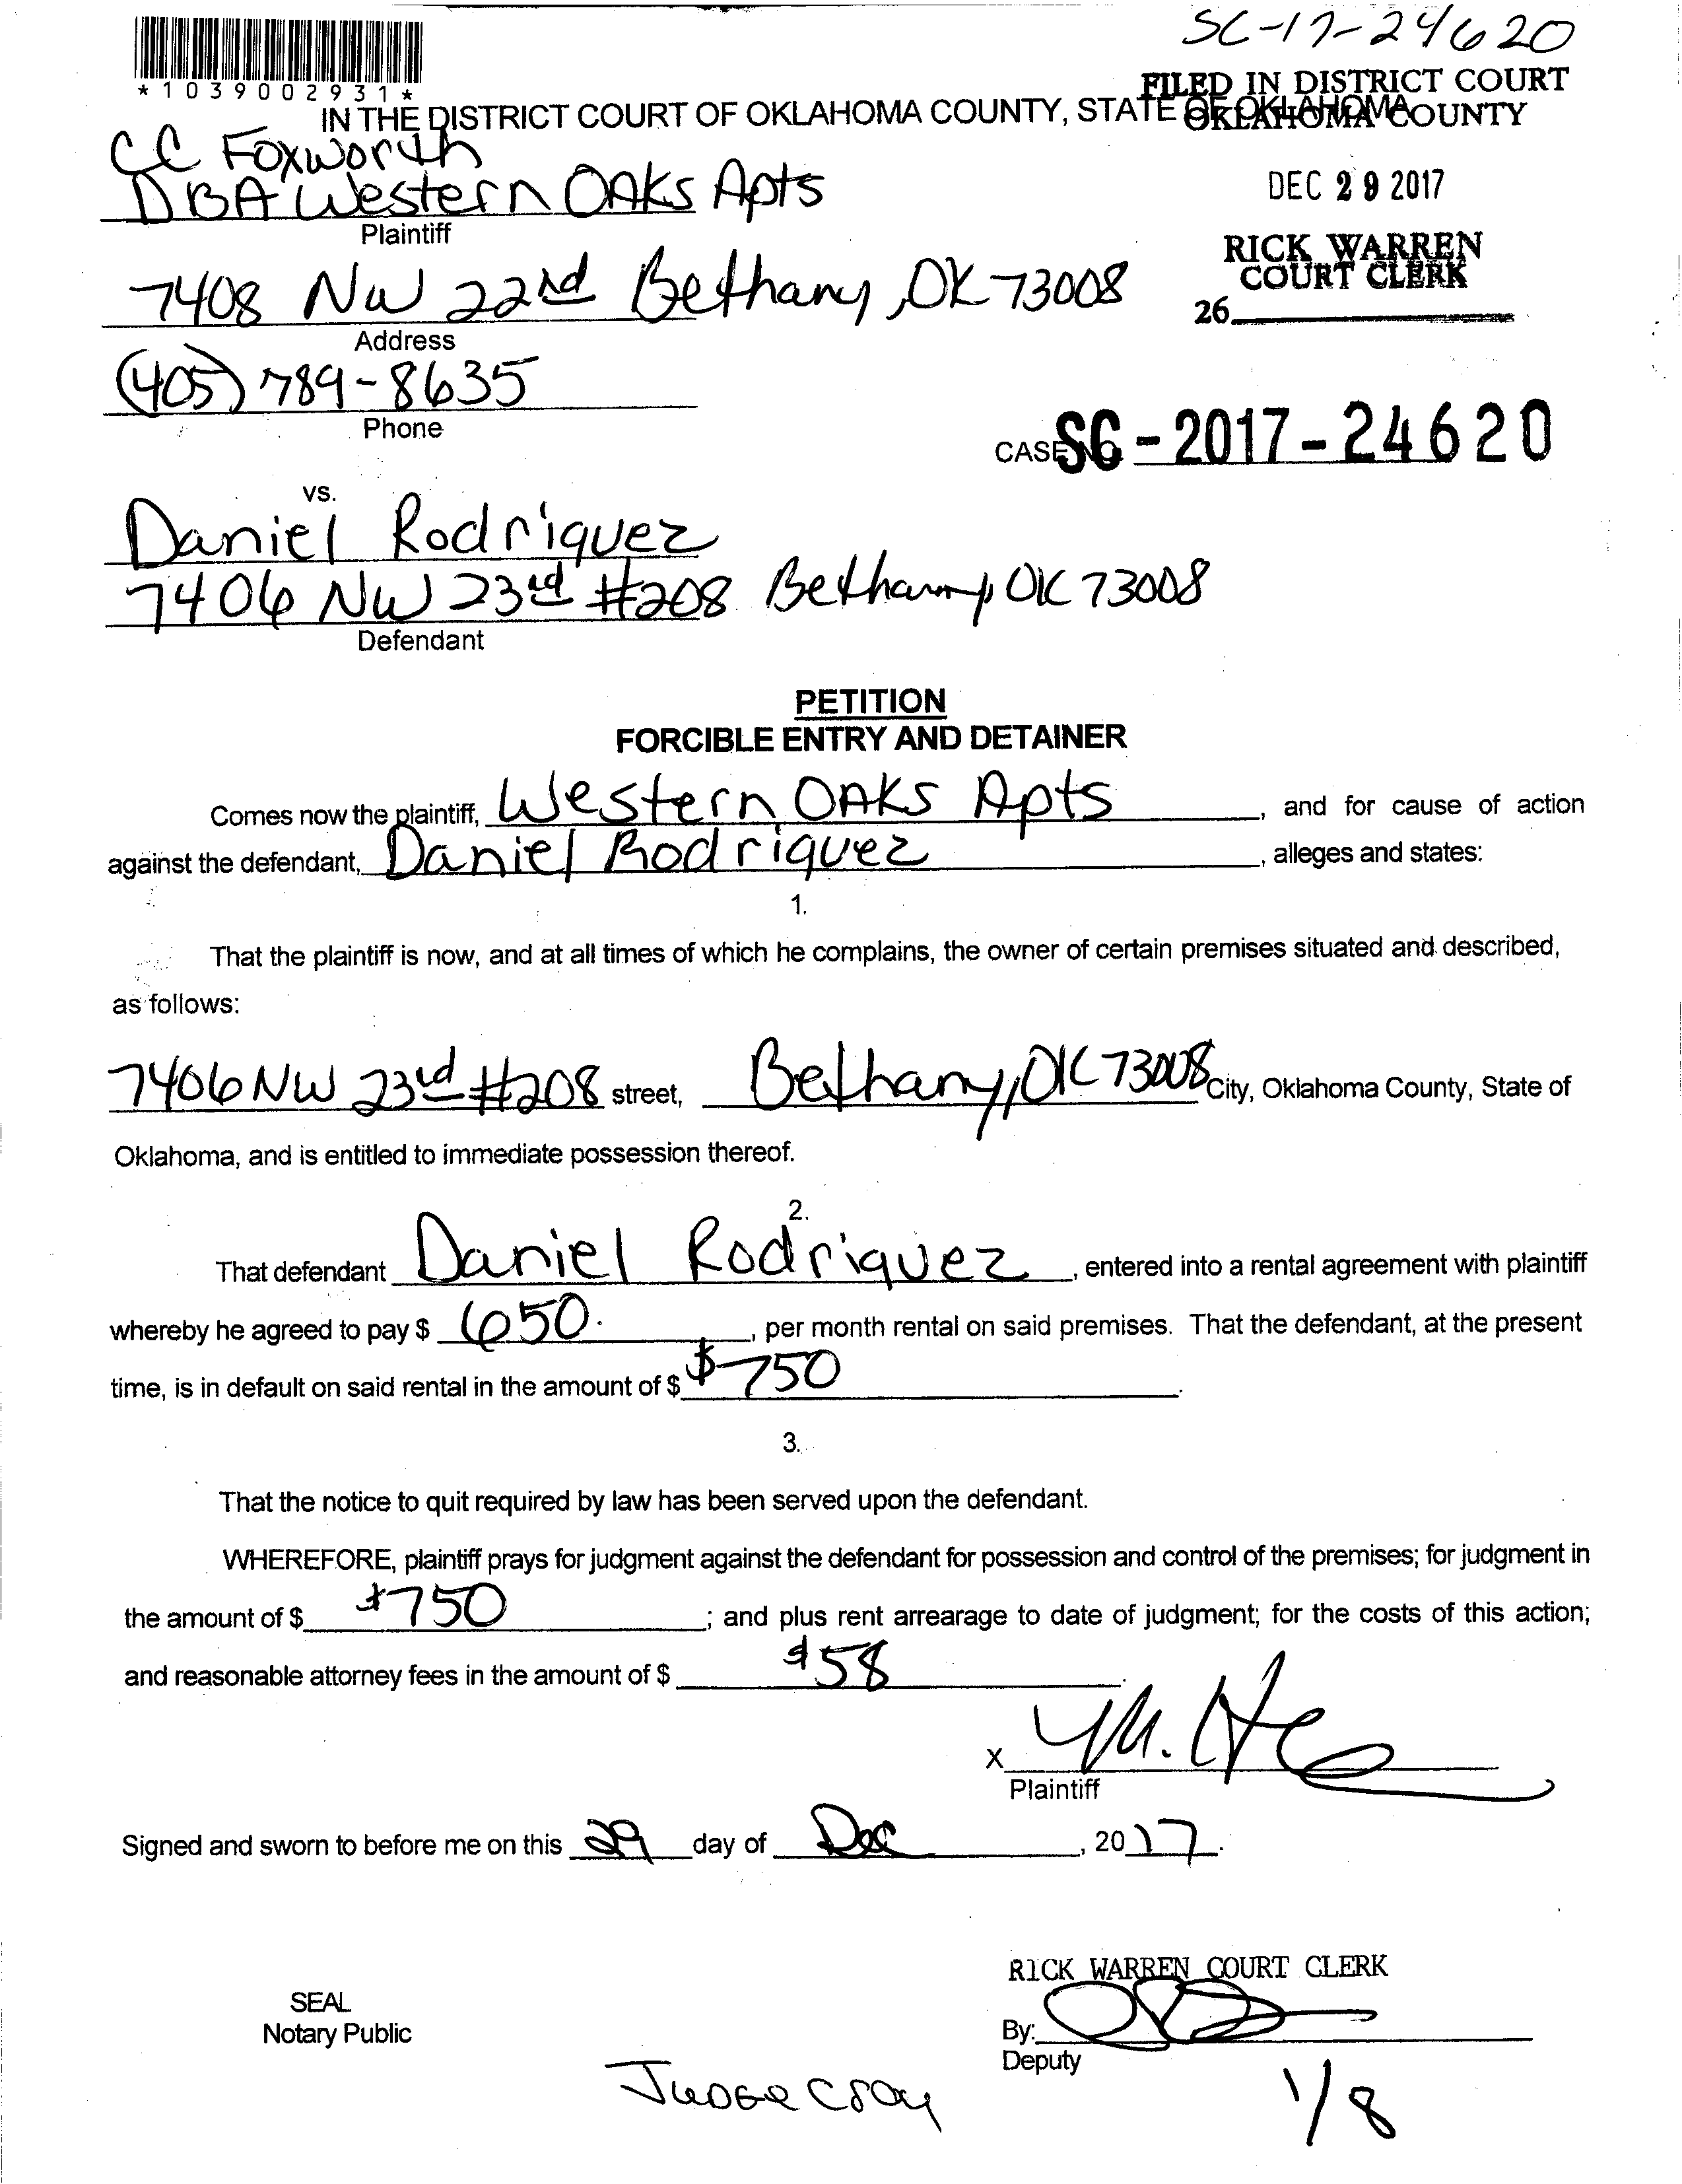 SC-17-24620
*1039002931*
FILED IN DISTRICT COURT
OKLAHOMA COUNTY
IN THE DISTRICT COURT OF OKLAHOMA COUNTY, STATE OF OKLAHOMA
CC Foxworth
DBA Western OAKs Apts
Plaintiff
DEC 29 2017
RICK WARREN
COURT CLERK
26
7408 NW 22nd Bethany, OK 73008
Address
(405) 789-8635
Phone
CASE NO. SC-2017-24620
vs.
Daniel Rodriquez
7406 NW 23rd #208 Bethany, OK 73008
Defendant
PETITION
FORCIBLE ENTRY AND DETAINER
Comes now the plaintiff, Western OAKS Apts, and for cause of action
against the defendant, Daniel Rodriquez, alleges and states:
1.
That the plaintiff is now, and at all times of which he complains, the owner of certain premises situated and described,
as follows:
7406 NW 23rd #208 street, Bethany, OK 73008 City, Oklahoma County, State of
Oklahoma, and is entitled to immediate possession thereof.
2.
That defendant Daniel Rodriquez, entered into a rental agreement with plaintiff
whereby he agreed to pay $ 650., per month rental on said premises. That the defendant, at the present
time, is in default on said rental in the amount of $ $750.
3.
That the notice to quit required by law has been served upon the defendant.
WHEREFORE, plaintiff prays for judgment against the defendant for possession and control of the premises; for judgment in
the amount of $ $750; and plus rent arrearage to date of judgment; for the costs of this action;
and reasonable attorney fees in the amount of $ $58.
X
Plaintiff
Signed and sworn to before me on this 29 day of Dec, 2017.
RICK WARREN COURT CLERK
SEAL
Notary Public
By:
Deputy
Judge
1/8